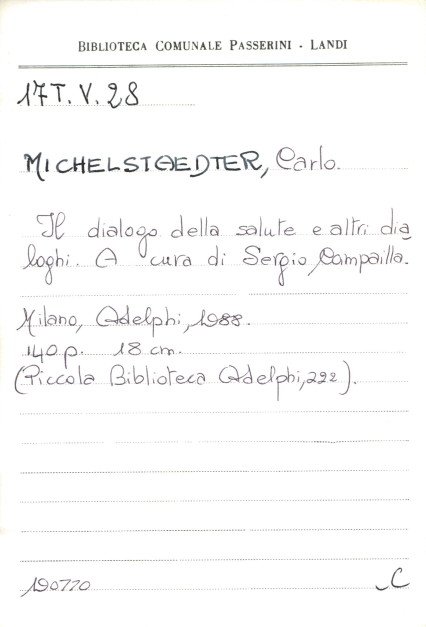 BIBLIOTECA COMUNALE PASSERINI - LANDI
17 T. V. 28
MICHELSTAEDTER, Carlo.
Il dialogo della salute e altri dia
loghi. A cura di Sergio Campailla.
Milano, Adelphi, 1988.
140 p. 18 cm.
(Piccola Biblioteca Adelphi, 222).
190770
C